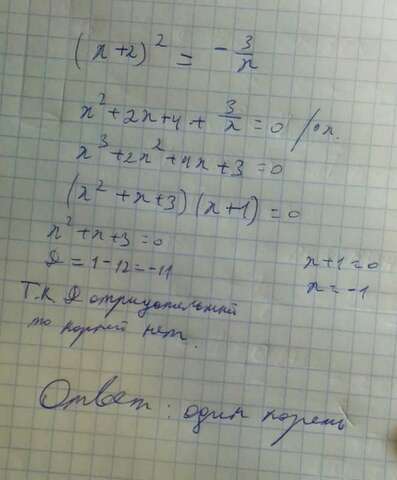 (x+2)² = -3/x
x²+2x+4+3/x=0 /·x.
x³+2x²+4x+3=0
(x²+x+3)(x+1)=0
x²+x+3=0
D=1-12=-11
x+1=0
x=-1
Т.К D отрицательный
то корней нет.
Ответ: один корень